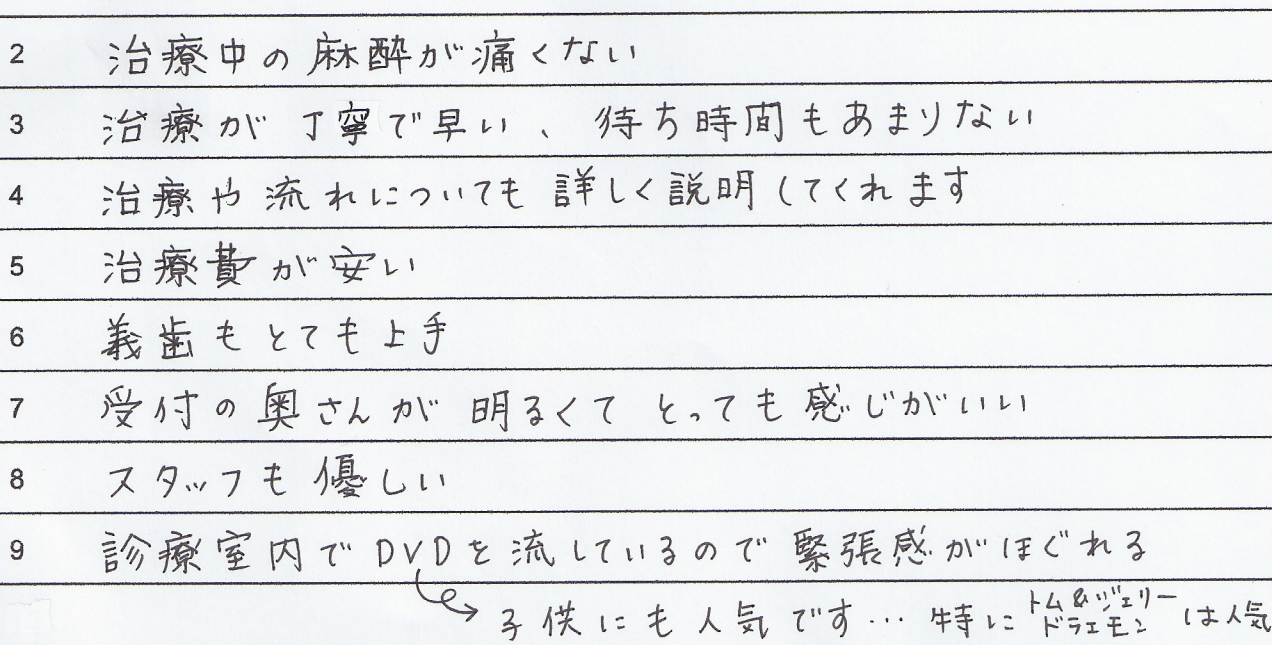 2 治療中の麻酔が痛くない
3 治療が丁寧で早い、待ち時間もあまりない
4 治療や流れについても詳しく説明してくれます
5 治療費が安い
6 義歯もとても上手
7 受付の奥さんが明るくてとっても感じがいい
8 スタッフも優しい
9 診療室内でDVDを流しているので緊張感がほぐれる
子供にも人気です…特にトム&ジェリー
ドラエモンは人気